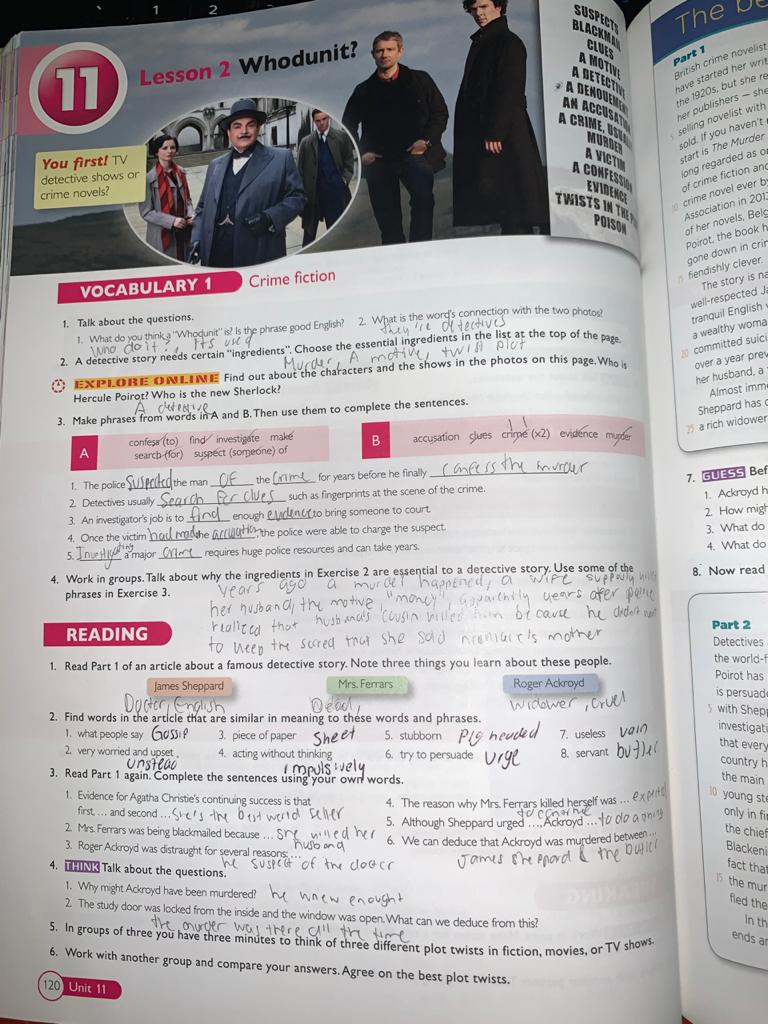 1 2
11
Lesson 2 Whodunit?
You first! TV
detective shows or
crime novels?
SUSPECTS
BLACKMAIL
CLUES
A MOTIVE
A DETECTIVE
A DENOUEMENT
AN ACCUSATION
A CRIME,
MURDER
A VICTIM
A CONFESSION
EVIDENCE
TWISTS IN THE
POISON
VOCABULARY 1 Crime fiction
1. Talk about the questions.
1. What do you think a "Whodunit" is? Is the phrase good English? 2. What is the word's connection with the two photos?
who do it?, its used they're detectives
2. A detective story needs certain "ingredients". Choose the essential ingredients in the list at the top of the page.
Murder, A motive, twist plot
EXPLORE ONLINE Find out about the characters and the shows in the photos on this page. Who is
Hercule Poirot? Who is the new Sherlock?
A detective
3. Make phrases from words in A and B. Then use them to complete the sentences.
A confess (to) find investigate make
search (for) suspect (someone) of
B accusation clues crime (x2) evidence murder
1. The police suspected the man OF the crime for years before he finally confess the murder
2. Detectives usually Search For clues such as fingerprints at the scene of the crime.
3. An investigator's job is to find enough evidence to bring someone to court.
4. Once the victim had made the accusation, the police were able to charge the suspect.
5. Investigating a major crime requires huge police resources and can take years.
4. Work in groups. Talk about why the ingredients in Exercise 2 are essential to a detective story. Use some of the
phrases in Exercise 3.
years ago a murder happened, a wife
her husband, the motive "money", apparently years after police
realized that husband's cousin killed him because he didn't want
to keep the secred that she said mother
READING
1. Read Part 1 of an article about a famous detective story. Note three things you learn about these people.
James Sheppard Mrs. Ferrars Roger Ackroyd
Doctor, English Dead, Widower, cruel
2. Find words in the article that are similar in meaning to these words and phrases.
1. what people say Gossip 3. piece of paper sheet 5. stubborn Pig headed 7. useless vain
2. very worried and upset 4. acting without thinking 6. try to persuade urge 8. servant butler
unstead impulsively
3. Read Part 1 again. Complete the sentences using your own words.
1. Evidence for Agatha Christie's continuing success is that
first, ... and second ... she's the best world seller
2. Mrs. Ferrars was being blackmailed because ... she killed her
husband
3. Roger Ackroyd was distraught for several reasons: ...
he suspect of the doctor
4. The reason why Mrs. Ferrars killed herself was ...
5. Although Sheppard urged ..., Ackroyd ...
6. We can deduce that Ackroyd was murdered between ...
James Sheppard & the butler
4. THINK Talk about the questions.
1. Why might Ackroyd have been murdered? he knew enought
2. The study door was locked from the inside and the window was open. What can we deduce from this?
the murder was there all the time
5. In groups of three you have three minutes to think of three different plot twists in fiction, movies, or TV shows.
6. Work with another group and compare your answers. Agree on the best plot twists.
120 Unit 11
The be
Part 1
British crime novelist
have started her
the 1920s, but she
her publishers – she
5 selling novelist with
sold. If you haven't
start is The Murder
long regarded as
of crime fiction and
10 crime novel ever by
Association in 201
of her novels, Belg
Poirot, the book h
gone down in crim
15 fiendishly clever.
The story is na
well-respected Ja
tranquil English
a wealthy woma
20 committed suici
over a year prev
her husband, a
Almost imme
Sheppard has
25 a rich widower
7. GUESS Bef
1. Ackroyd h
2. How migh
3. What do
4. What do
8. Now read
Part 2
Detectives
the world-f
Poirot has
is persuade
5 with Shepp
investigati
that every
country h
the main
10 young ste
only in fir
the chief
Blackeni
fact that
15 the mur
fled the
In th
ends an